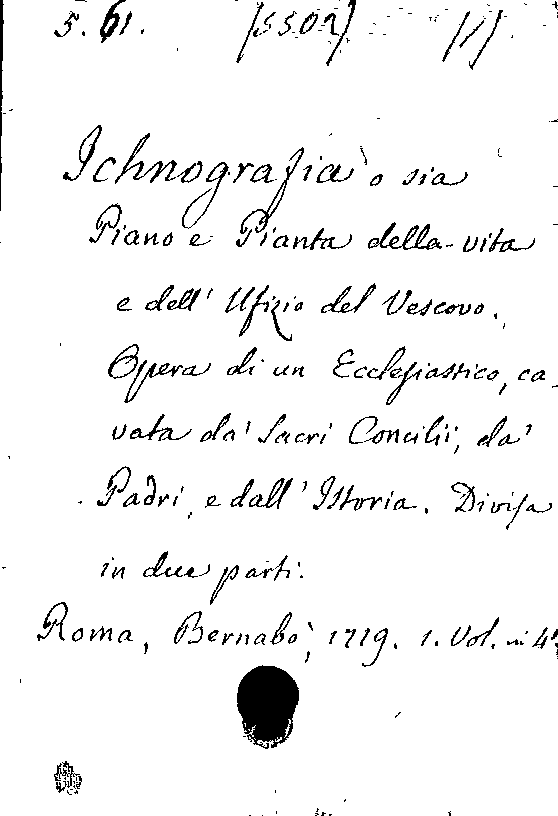 5. 61. [5502] [1]
Ichnografia o sia
Piano e Pianta della vita
e dell' Ufizio del Vescovo.
Opera di un Ecclesiastico, ca-
vata da' Sacri Concilii, da'
Padri, e dall' Istoria. Divisa
in due parti.
Roma, Bernabò, 1719. 1. Vol. in 4°.